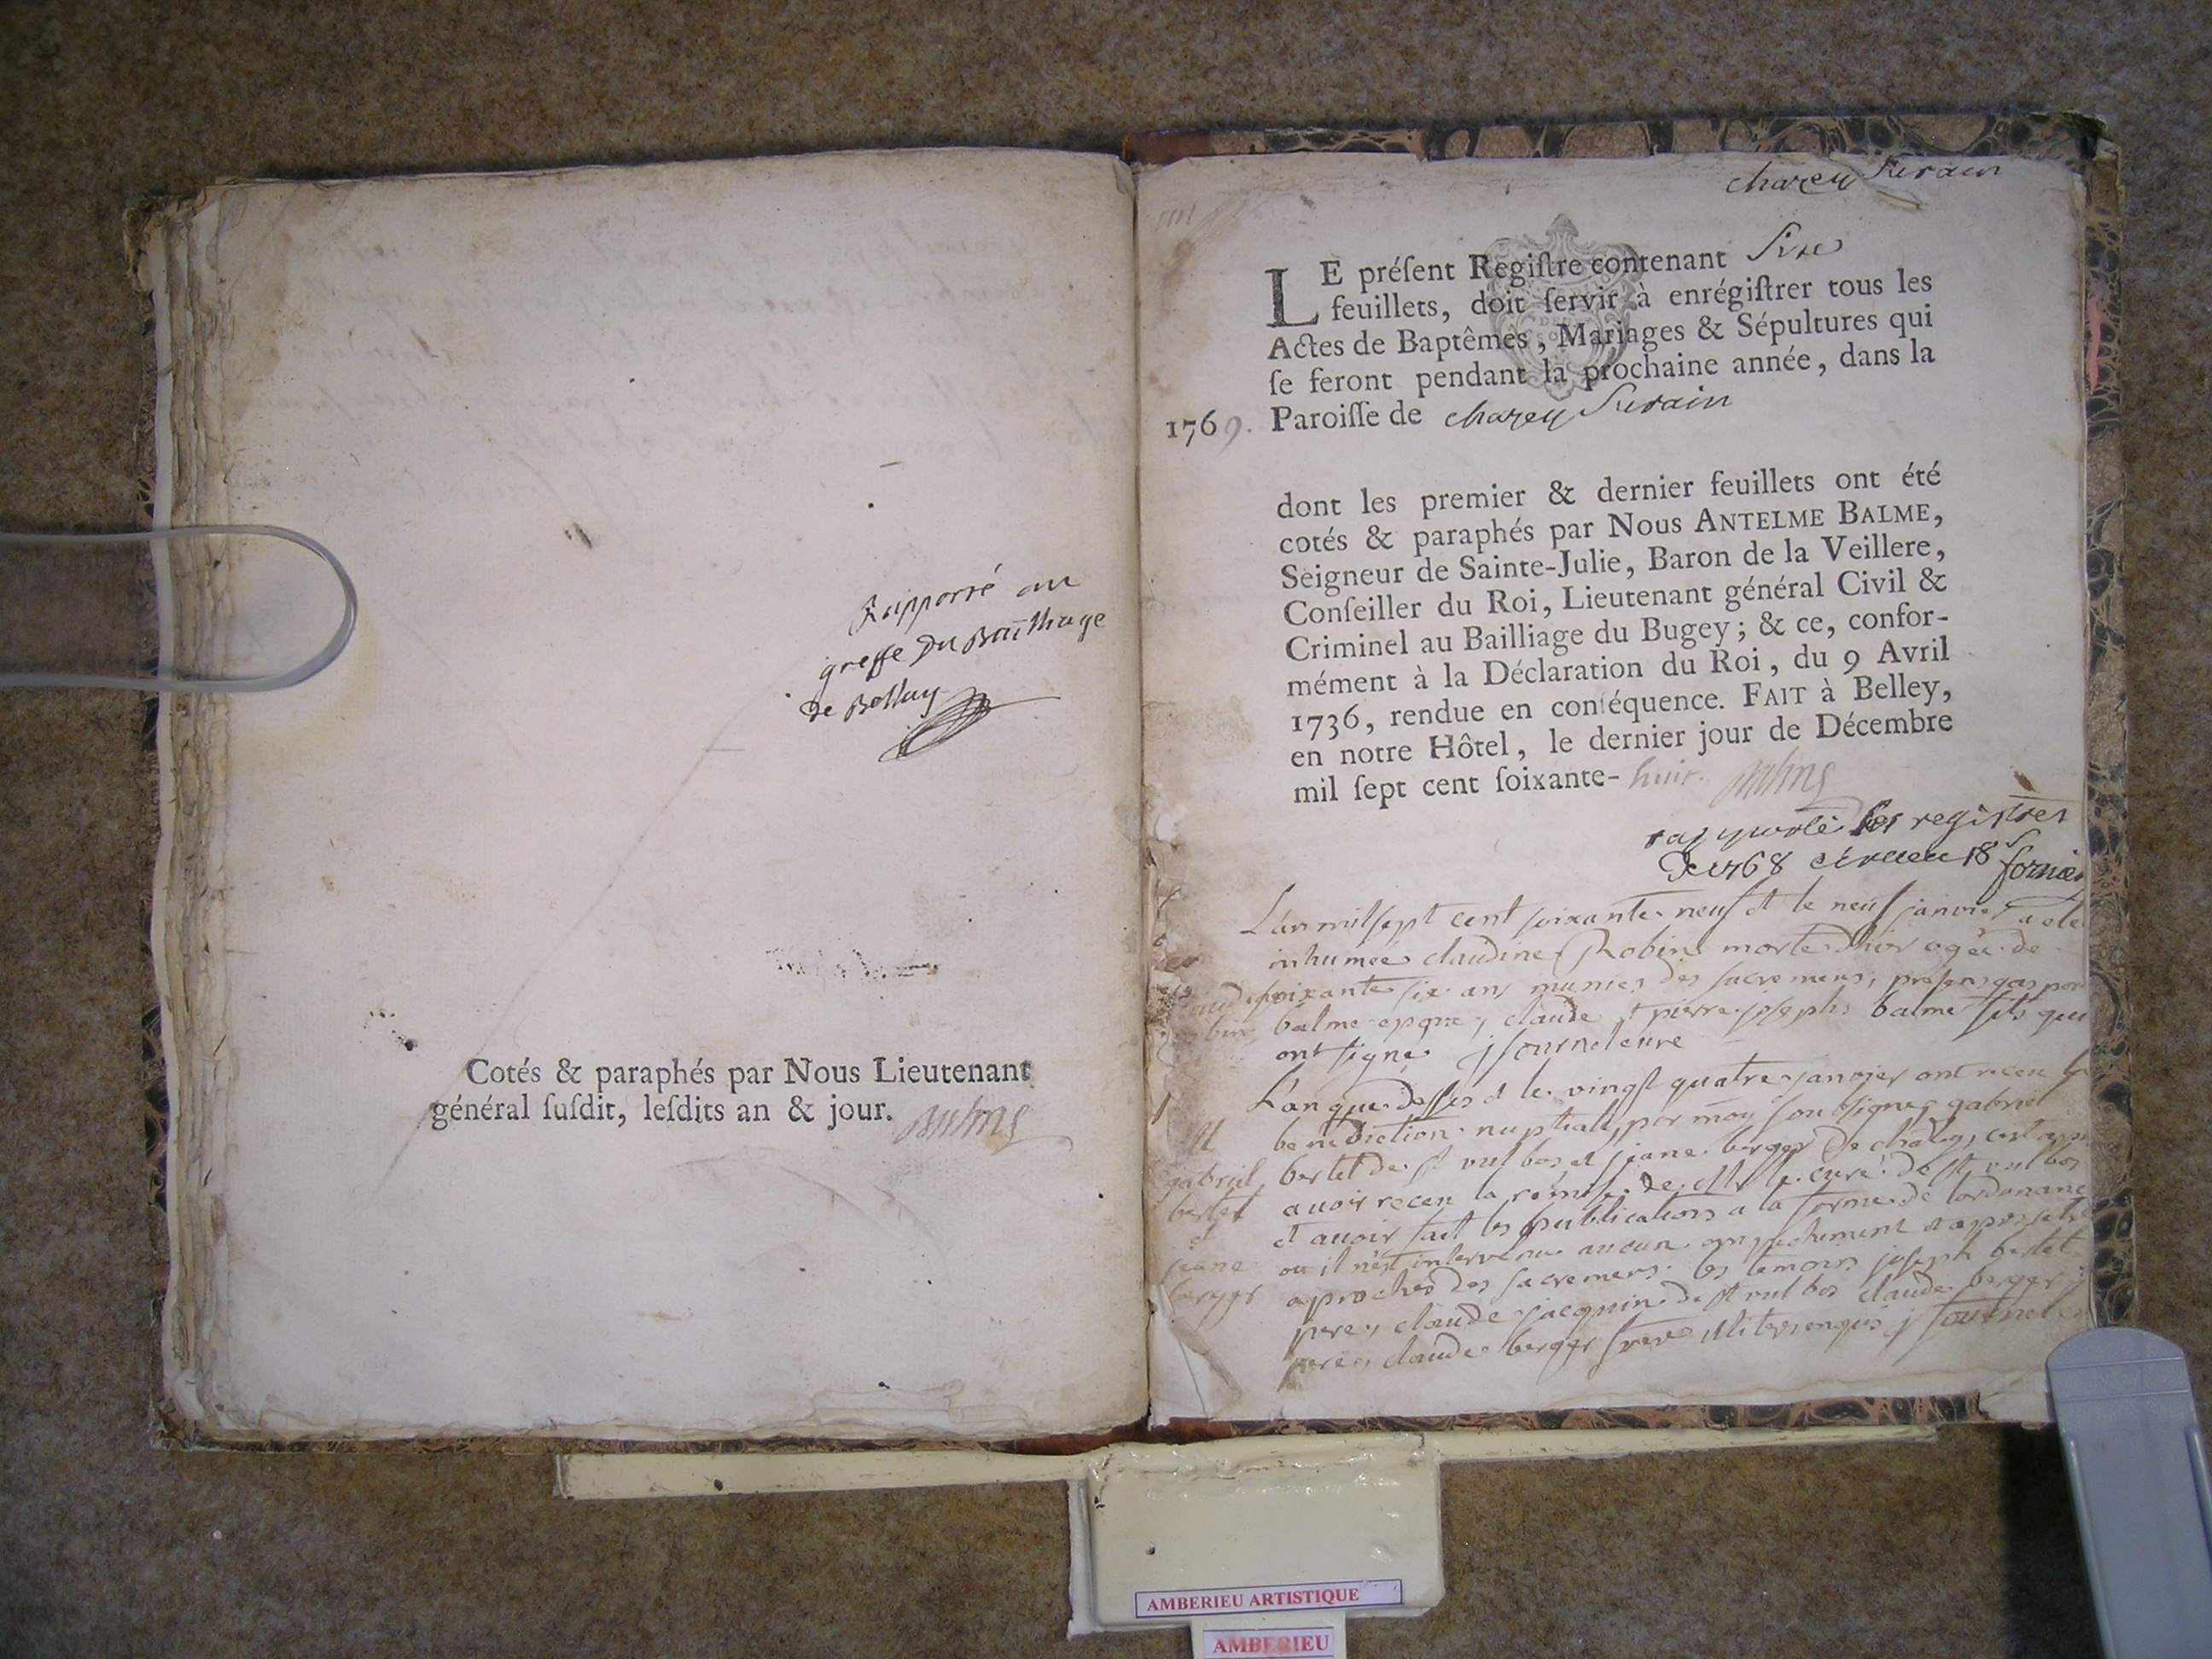 Rapporté au
greffe Du Bailliage
de Belley
Cotés & paraphés par Nous Lieutenant
général ſuſdit, leſdits an & jour. Balme
chazey Surain
LE préſent Regiſtre contenant Sixe
feuillets, doit ſervir à enrégiſtrer tous les
Actes de Baptêmes, Mariages & Sépultures qui
ſe feront pendant la prochaine année, dans la
1769. Paroiſſe de chazey Surain
dont les premier & dernier feuillets ont été
cotés & paraphés par Nous ANTELME BALME,
Seigneur de Sainte-Julie, Baron de la Veillere,
Conſeiller du Roi, Lieutenant général Civil &
Criminel au Bailliage du Bugey; & ce, confor-
mément à la Déclaration du Roi, du 9 Avril
1736, rendue en conſéquence. FAIT à Belley,
en notre Hôtel, le dernier jour de Décembre
mil ſept cent ſoixante-huit. Balme
rapporté les registres
De 1768 et receu 18ˢ fornier
L'an mil sept cent soixante neuf et le neuf janvier a eté
inhumée claudine Robin morte D'hier agée de
soixante six ans munies des sacremens, presens
balme claude et pierre joseph balme fils qui
ont signe j fournel cure
L'an que dessus et le vingt quatre janvier ont receu la
benediction nuptiale, par moy soussigne, gabriel
bertet de st vulbas et jeane berger de chazey,
avoir receu la remise de Mr le curé de st vulbas
et avoir fait les publications a la forme de lordonance
ou il n'est intervenu aucun empechement et apres
aproches des sacremens. les temoins joseph bertet
pere, claude jacquin de st vulbas claude berger
pere, claude berger frere, illiteres enquis j fournel
M
gabriel
bertet
et
jeane
berger
AMBERIEU ARTISTIQUE
AMBERIEU